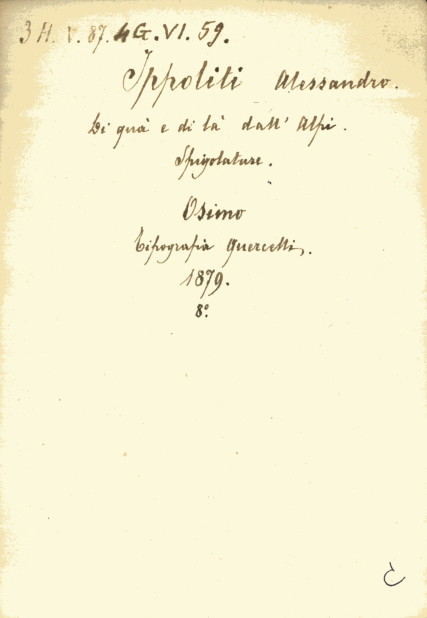 3 H. V. 87. 4G. VI. 59.
Ippoliti Alessandro.
Di quà e di là dall' Alpi.
Spigolature.
Osimo
Tipografia Quercetti.
1879.
8º.